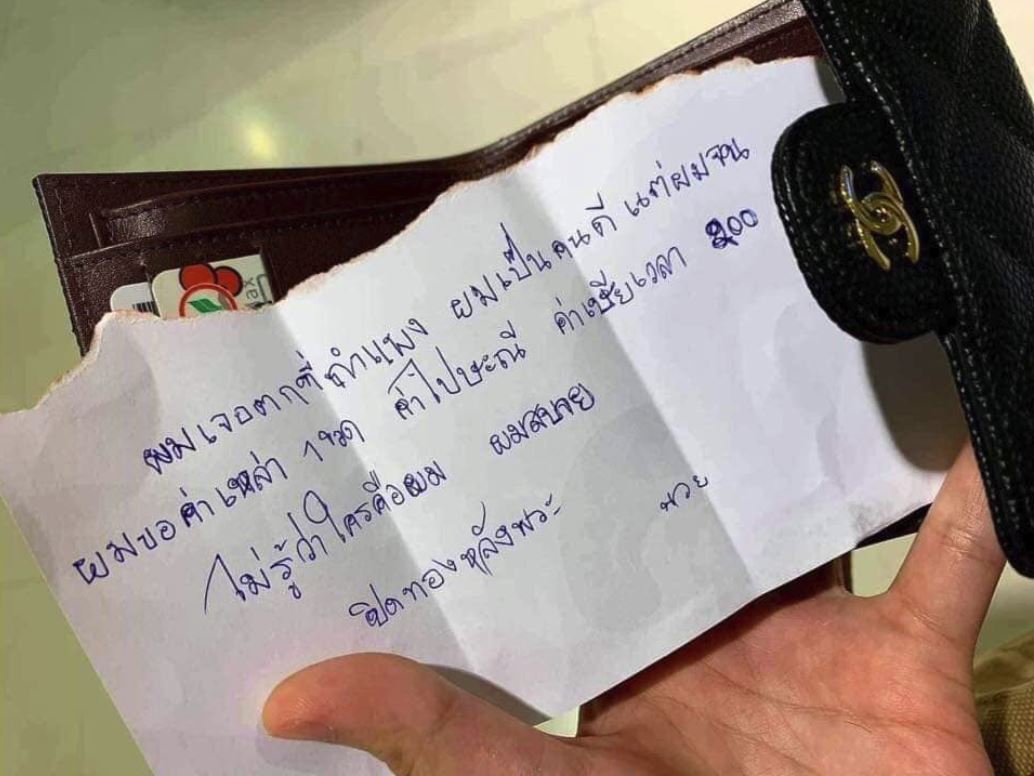 ผมเจอตกที่กำแพง ผมเป็นคนดี แต่ผมจน
ผมขอค่าเหล้า 1 ขวด ค่าไปษะณี ค่าเซียเวลา 200
ไม่รู้ว่าใครคือผม ผมสบาย
ปิดทองหลังพระ